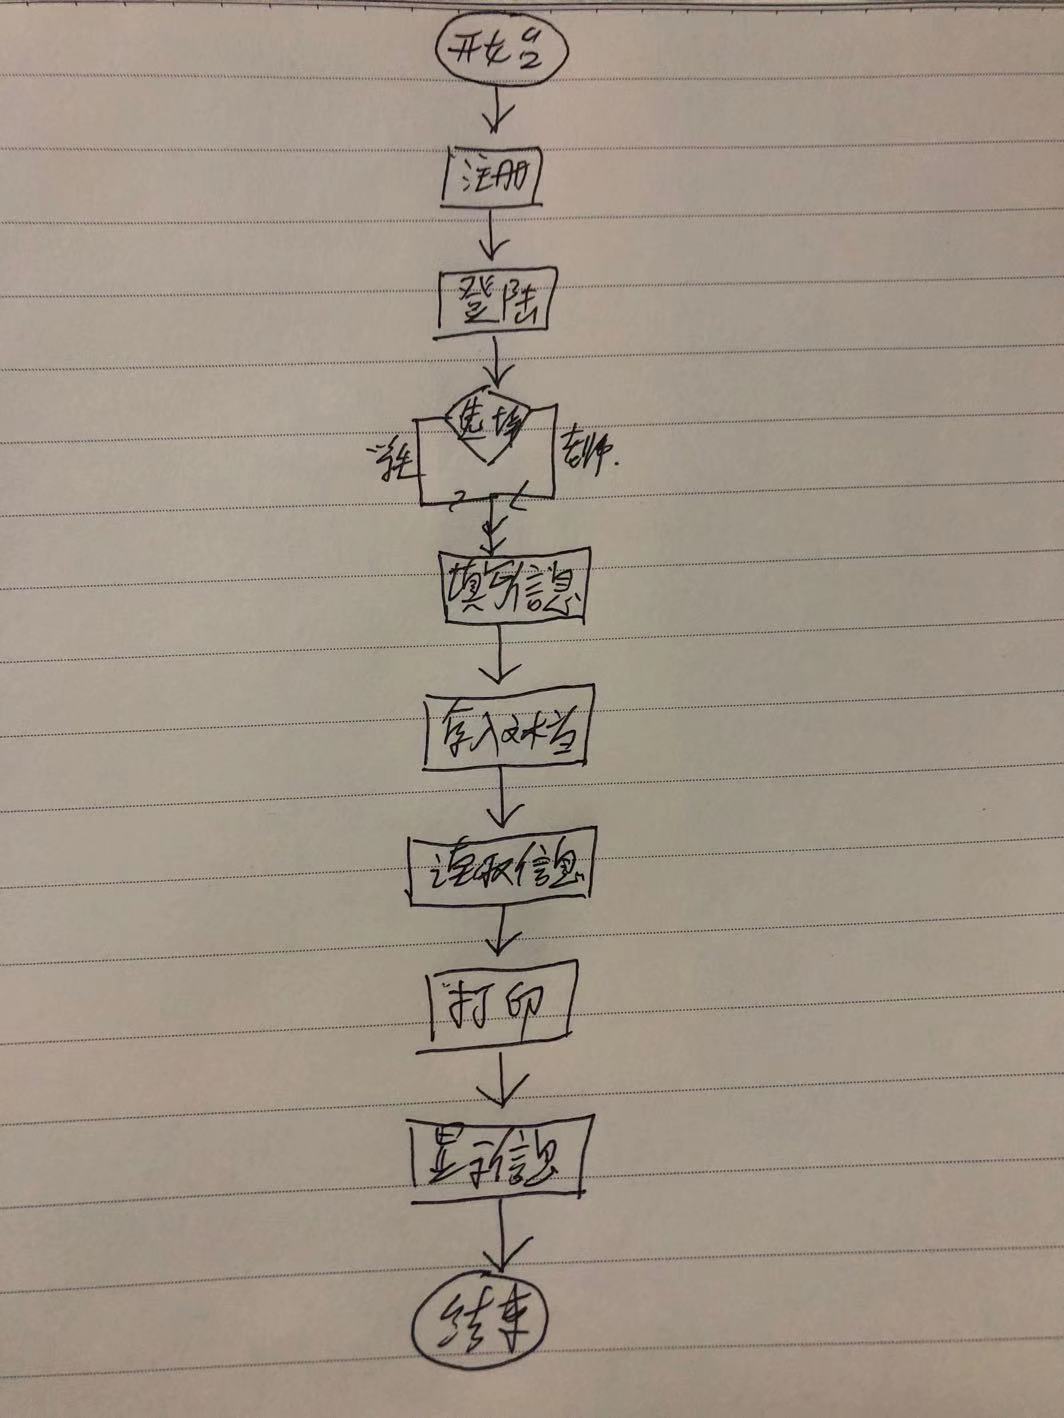 开始
注册
登陆
选择
学生
老师.
填写信息
存入文档
读取信息
打印
显示信息
结束